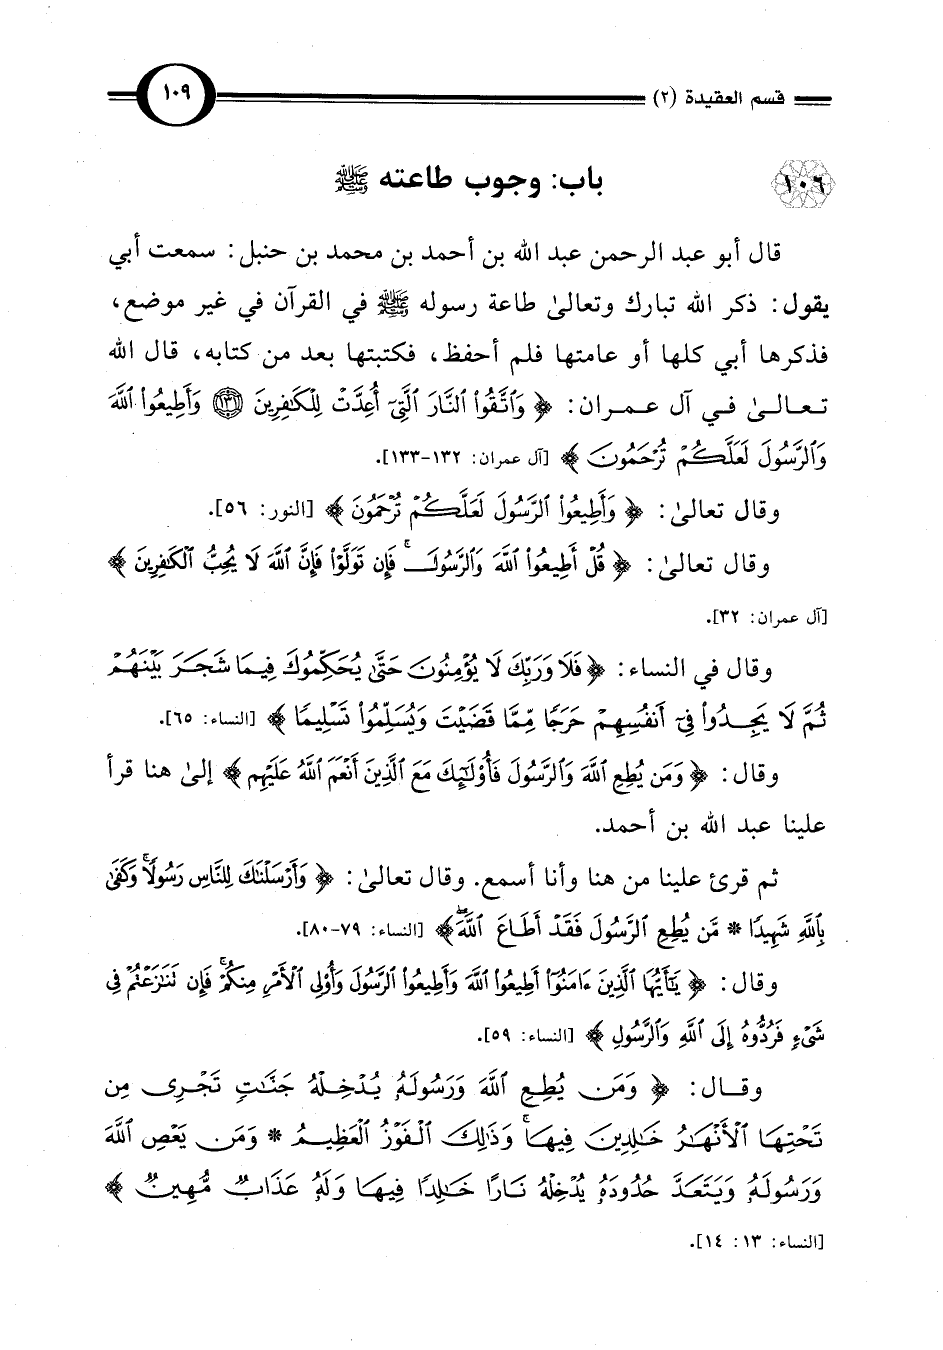 قسم العقيدة (٢) ١٠٩
١٠٦ باب: وجوب طاعته ﷺ
قال أبو عبد الرحمن عبد الله بن أحمد بن محمد بن حنبل: سمعت أبي
يقول: ذكر الله تبارك وتعالىٰ طاعة رسوله ﷺ في القرآن في غير موضع،
فذكرها أبي كلها أو عامتها فلم أحفظ، فكتبتها بعد من كتابه، قال الله
تـعـالـىٰ فـي آل عـمـران: ﴿ وَٱتَّقُوا۟ ٱلنَّارَ ٱلَّتِىٓ أُعِدَّتْ لِلْكَـٰفِرِينَ ١٣١ وَأَطِيعُوا۟ ٱللَّهَ
وَٱلرَّسُولَ لَعَلَّكُمْ تُرْحَمُونَ ﴾ [آل عمران: ١٣٢-١٣٣].
وقال تعالىٰ: ﴿ وَأَطِيعُوا۟ ٱلرَّسُولَ لَعَلَّكُمْ تُرْحَمُونَ ﴾ [النور: ٥٦].
وقال تعالىٰ: ﴿ قُلْ أَطِيعُوا۟ ٱللَّهَ وَٱلرَّسُولَ ۖ فَإِن تَوَلَّوْا۟ فَإِنَّ ٱللَّهَ لَا يُحِبُّ ٱلْكَـٰفِرِينَ ﴾
[آل عمران: ٣٢].
وقال في النساء: ﴿ فَلَا وَرَبِّكَ لَا يُؤْمِنُونَ حَتَّىٰ يُحَكِّمُوكَ فِيمَا شَجَرَ بَيْنَهُمْ
ثُمَّ لَا يَجِدُوا۟ فِىٓ أَنفُسِهِمْ حَرَجًا مِّمَّا قَضَيْتَ وَيُسَلِّمُوا۟ تَسْلِيمًا ﴾ [النساء: ٦٥].
وقال: ﴿ وَمَن يُطِعِ ٱللَّهَ وَٱلرَّسُولَ فَأُو۟لَـٰٓئِكَ مَعَ ٱلَّذِينَ أَنْعَمَ ٱللَّهُ عَلَيْهِم ﴾ إلىٰ هنا قرأ
علينا عبد الله بن أحمد.
ثم قرئ علينا من هنا وأنا أسمع. وقال تعالىٰ: ﴿ وَأَرْسَلْنَـٰكَ لِلنَّاسِ رَسُولًا ۚ وَكَفَىٰ
بِٱللَّهِ شَهِيدًا * مَّن يُطِعِ ٱلرَّسُولَ فَقَدْ أَطَاعَ ٱللَّهَ ۖ ﴾ [النساء: ٧٩-٨٠].
وقال: ﴿ يَـٰٓأَيُّهَا ٱلَّذِينَ ءَامَنُوٓا۟ أَطِيعُوا۟ ٱللَّهَ وَأَطِيعُوا۟ ٱلرَّسُولَ وَأُو۟لِى ٱلْأَمْرِ مِنكُمْ ۖ فَإِن تَنَـٰزَعْتُمْ فِى
شَىْءٍ فَرُدُّوهُ إِلَى ٱللَّهِ وَٱلرَّسُولِ ﴾ [النساء: ٥٩].
وقـال: ﴿ وَمَن يُطِعِ ٱللَّهَ وَرَسُولَهُۥ يُدْخِلْهُ جَنَّـٰتٍ تَجْرِى مِن
تَحْتِهَا ٱلْأَنْهَـٰرُ خَـٰلِدِينَ فِيهَا ۚ وَذَٰلِكَ ٱلْفَوْزُ ٱلْعَظِيمُ * وَمَن يَعْصِ ٱللَّهَ
وَرَسُولَهُۥ وَيَتَعَدَّ حُدُودَهُۥ يُدْخِلْهُ نَارًا خَـٰلِدًا فِيهَا وَلَهُۥ عَذَابٌ مُّهِينٌ ﴾
[النساء: ١٣: ١٤].